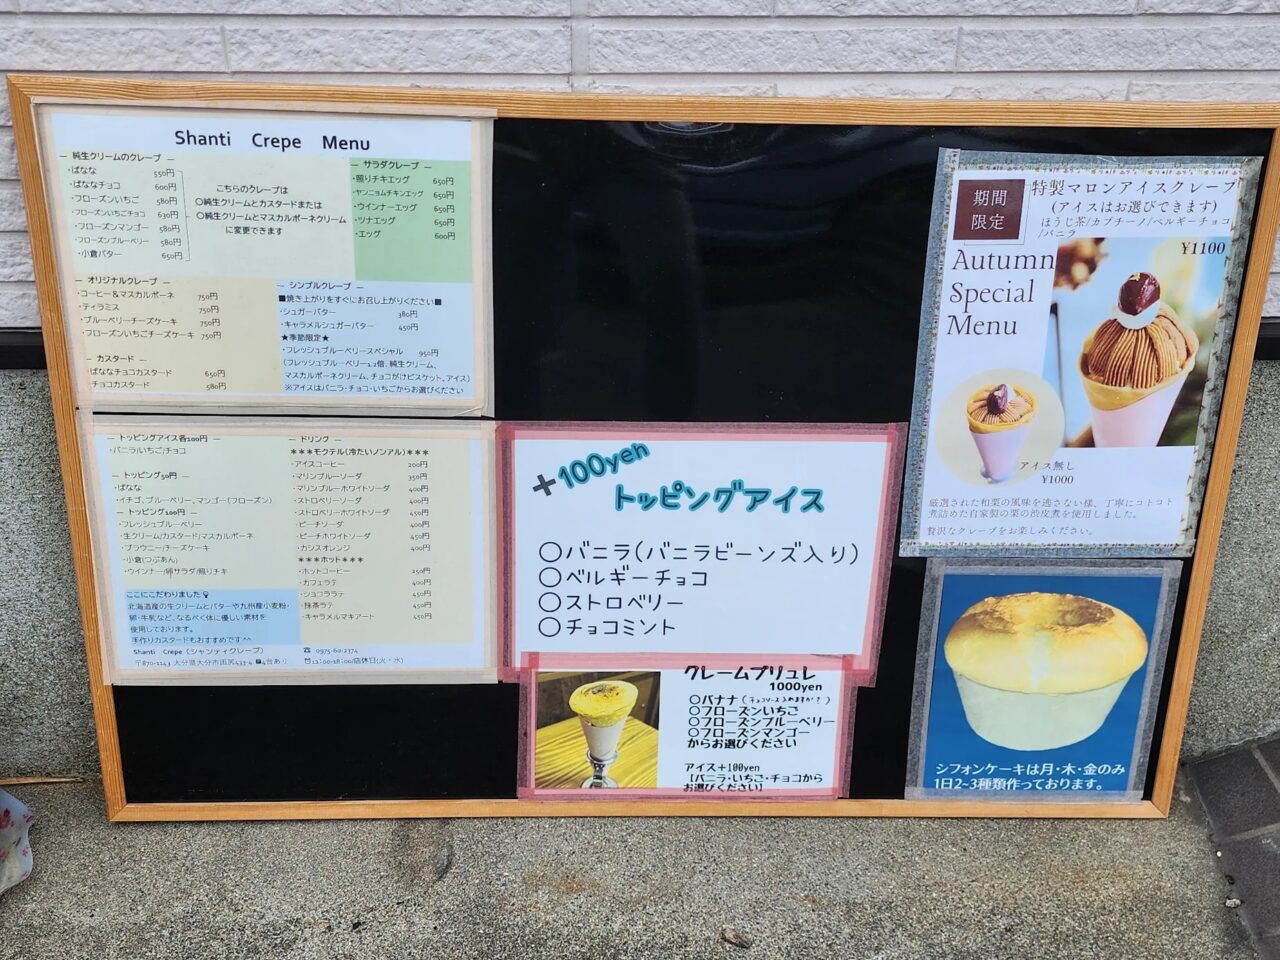 Shanti Crepe Menu
― 純生クリームのクレープ ―
・ばなな 550円
・ばななチョコ 600円
・フローズンいちご 580円
・フローズンいちごチョコ 630円
・フローズンマンゴー 580円
・フローズンブルーベリー 580円
・小倉バター 650円
こちらのクレープは
○純生クリームとカスタードまたは
○純生クリームとマスカルポーネクリーム
に変更できます
― サラダクレープ ―
・照りチキエッグ 650円
・ヤンニョムチキンエッグ 650円
・ウインナーエッグ 650円
・ツナエッグ 650円
・エッグ 600円
― オリジナルクレープ ―
・コーヒー&マスカルポーネ 750円
・ティラミス 750円
・ブルーベリーチーズケーキ 750円
・フローズンいちごチーズケーキ 750円
― カスタード ―
・ばななチョコカスタード 650円
・チョコカスタード 580円
― シンプルクレープ ―
■焼き上がりをすぐにお召し上がりください■
・シュガーバター 380円
・キャラメルシュガーバター 450円
★季節限定★
・フレッシュブルーベリースペシャル 950円
(フレッシュブルーベリー1.2倍、純生クリーム、
マスカルポーネクリーム、チョコがけビスケット、アイス)
※アイスはバニラ・チョコ・いちごからお選びください
― トッピングアイス各100円 ―
・バニラ/いちご/チョコ
― トッピング50円 ―
・ばなな
・イチゴ、ブルーベリー、マンゴー(フローズン)
― トッピング100円 ―
・フレッシュブルーベリー
・生クリーム/カスタード/マスカルポーネ
・ブラウニー/チーズケーキ
・小倉(つぶあん)
・ウインナー/卵サラダ/照りチキ
ここにこだわりました
北海道産の生クリームとバターや九州産小麦粉・
卵・牛乳など、なるべく体に優しい素材を
使用しております。
手作りカスタードもおすすめです^^
― ドリンク ―
＊＊＊モクテル(冷たいノンアル)＊＊＊
・アイスコーヒー 200円
・マリンブルーソーダ 350円
・マリンブルーホワイトソーダ 400円
・ストロベリーソーダ 400円
・ストロベリーホワイトソーダ 450円
・ピーチソーダ 400円
・ピーチホワイトソーダ 450円
・カシスオレンジ 400円
＊＊＊ホット＊＊＊
・ホットコーヒー 250円
・カフェラテ 400円
・ショコララテ 450円
・抹茶ラテ 450円
・キャラメルマキアート 450円
Shanti Crepe (シャンティクレープ) ☎ 0975-60-2374
〒870-1143 大分県大分市田尻433-4 4台あり 11:00-18:00/店休日(火・水)
+100yen
トッピングアイス
○バニラ(バニラビーンズ入り)
○ベルギーチョコ
○ストロベリー
○チョコミント
クレームブリュレ
1000yen
○バナナ
○フローズンいちご
○フローズンブルーベリー
○フローズンマンゴー
からお選びください
アイス+100yen
【バニラ・いちご・チョコから
お選びください】
期間
限定
特製マロンアイスクレープ
(アイスはお選びできます)
ほうじ茶/カプチーノ/ベルギーチョコ
/バニラ
¥1100
Autumn
Special
Menu
アイス無し
¥1000
厳選された和栗の風味を逃さない様、丁寧にコトコト
煮詰めた自家製の栗の渋皮煮を使用しました。
贅沢なクレープをお楽しみください。
シフォンケーキは月・木・金のみ
1日2~3種類作っております。